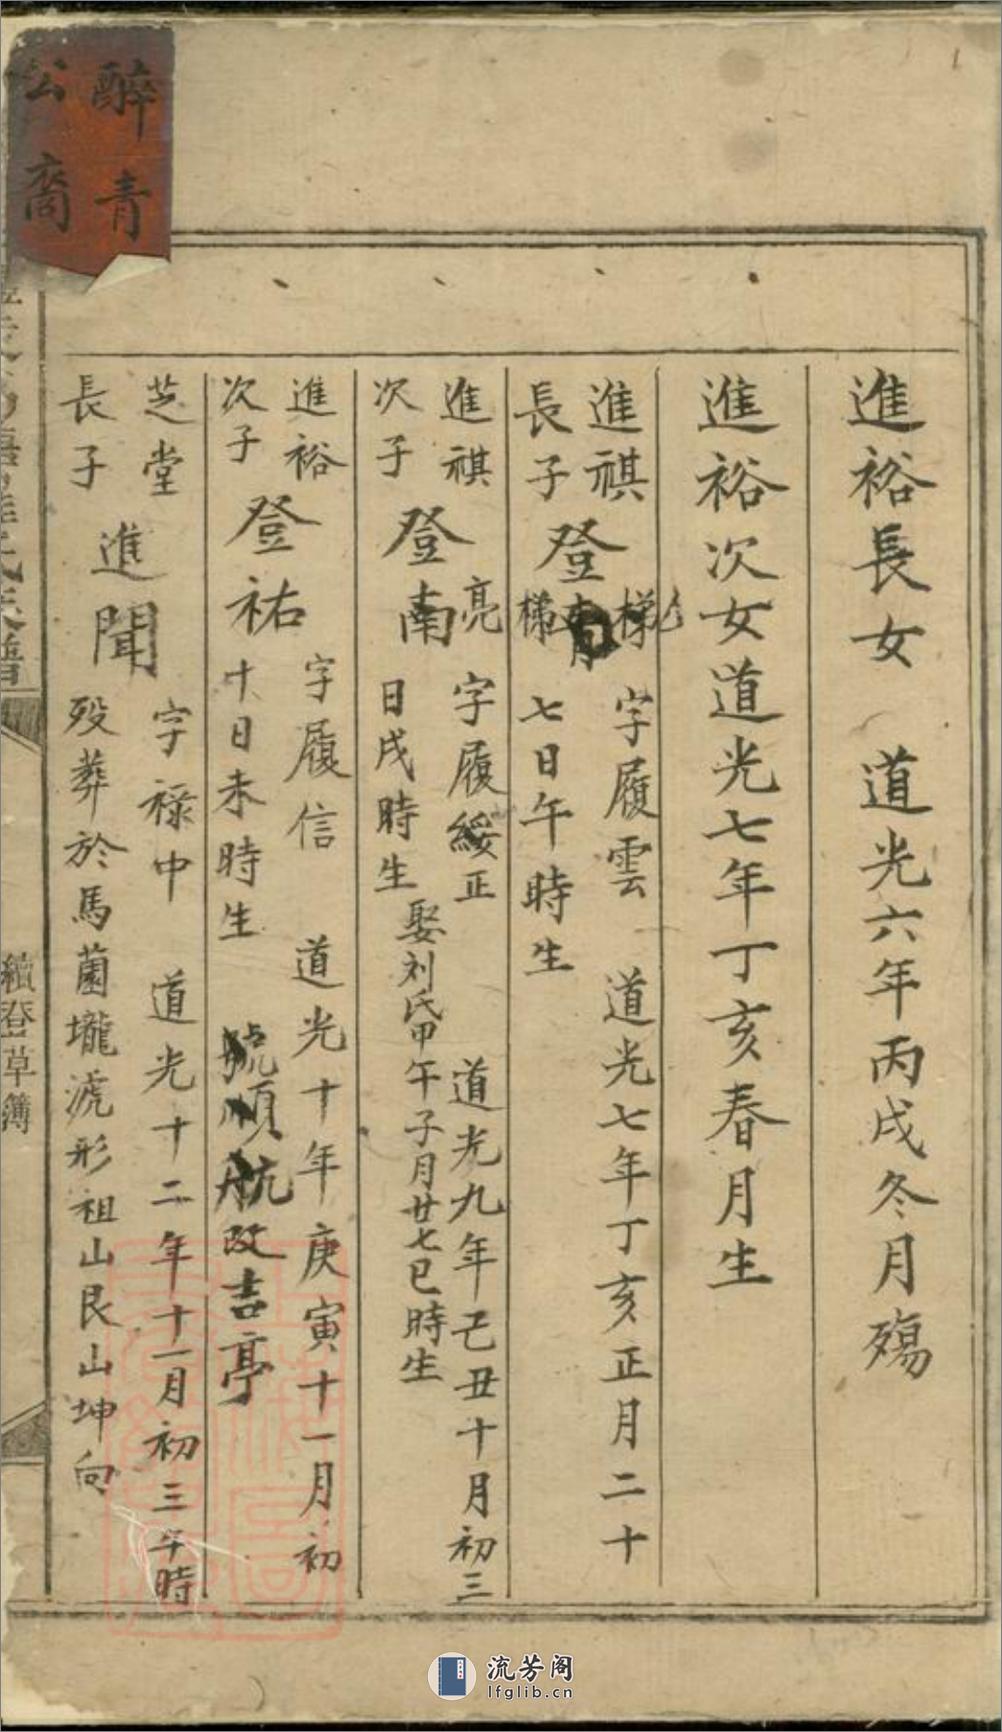 醉青
公裔
進裕長女 道光六年丙戌冬月殤
進裕次女道光七年丁亥春月生
進祺
長子
登
梯
梯
字履雲 道光七年丁亥正月二十
七日午時生
進祺
次子
登南
亮
字履綏正 道光九年己丑十月初三
日戌時生
娶刘氏甲午子月廿七巳時生
進裕
次子
登祐
字履信 道光十年庚寅十一月初
十日未時生
號順航改吉亭
芝堂
長子
進聞
字祿中 道光十二年十一月初三午時
殁葬於馬蘭壠淲形祖山艮山坤向
續登草簿
流芳阁
lfglib.cn